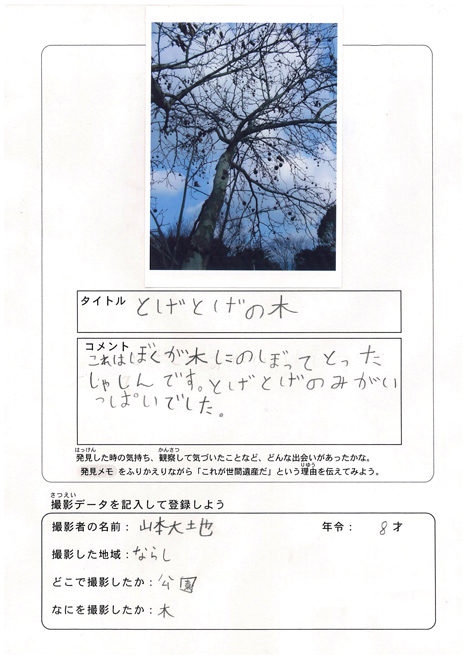 タイトル とげとげの木
コメント
これはぼくが木にのぼってとった
しゃしんです。とげとげのみがい
っぱいでした。
はっけん かんさつ
発見した時の気持ち、観察して気づいたことなど、どんな出会いがあったかな。
りゆう
発見メモ をふりかえりながら「これが世間遺産だ」という理由を伝えてみよう。
さつえい
撮影データを記入して登録しよう
撮影者の名前： 山本大地 年令： 8才
撮影した地域：ならし
どこで撮影したか：公園
なにを撮影したか：木